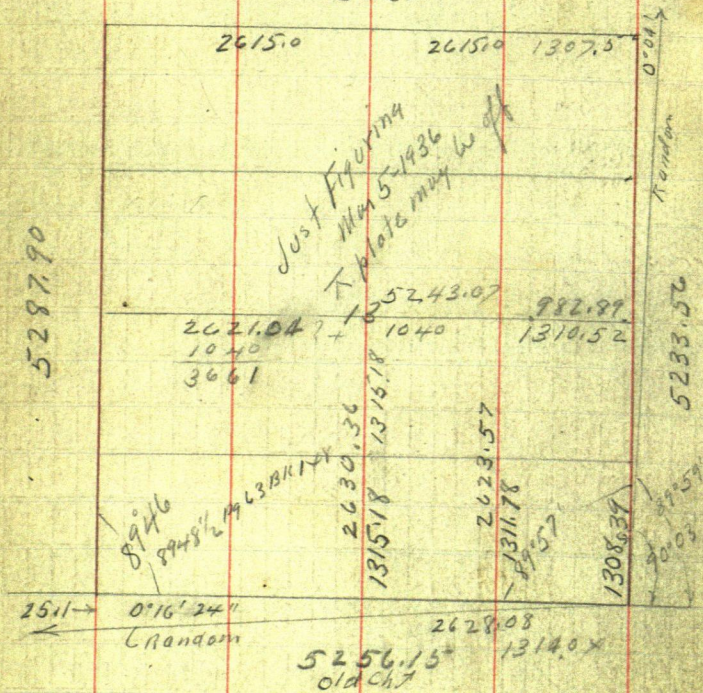 2615.0 2615.0 1307.5
0°04'
Random
Just Figuring
Mar 5-1936
plate may be off
5287.90
5243.07 982.89
13 1040 1310.52
2621.04 ?+
1040
3661
5233.56
2630.36 1315.18
1315.18
2623.57
1311.78
89°57'
1308.39
89°59'
90°03'
8946
8948½
25.1→ 0°16'24"
Random
2628.08
1314.0x
5256.15
old Ch